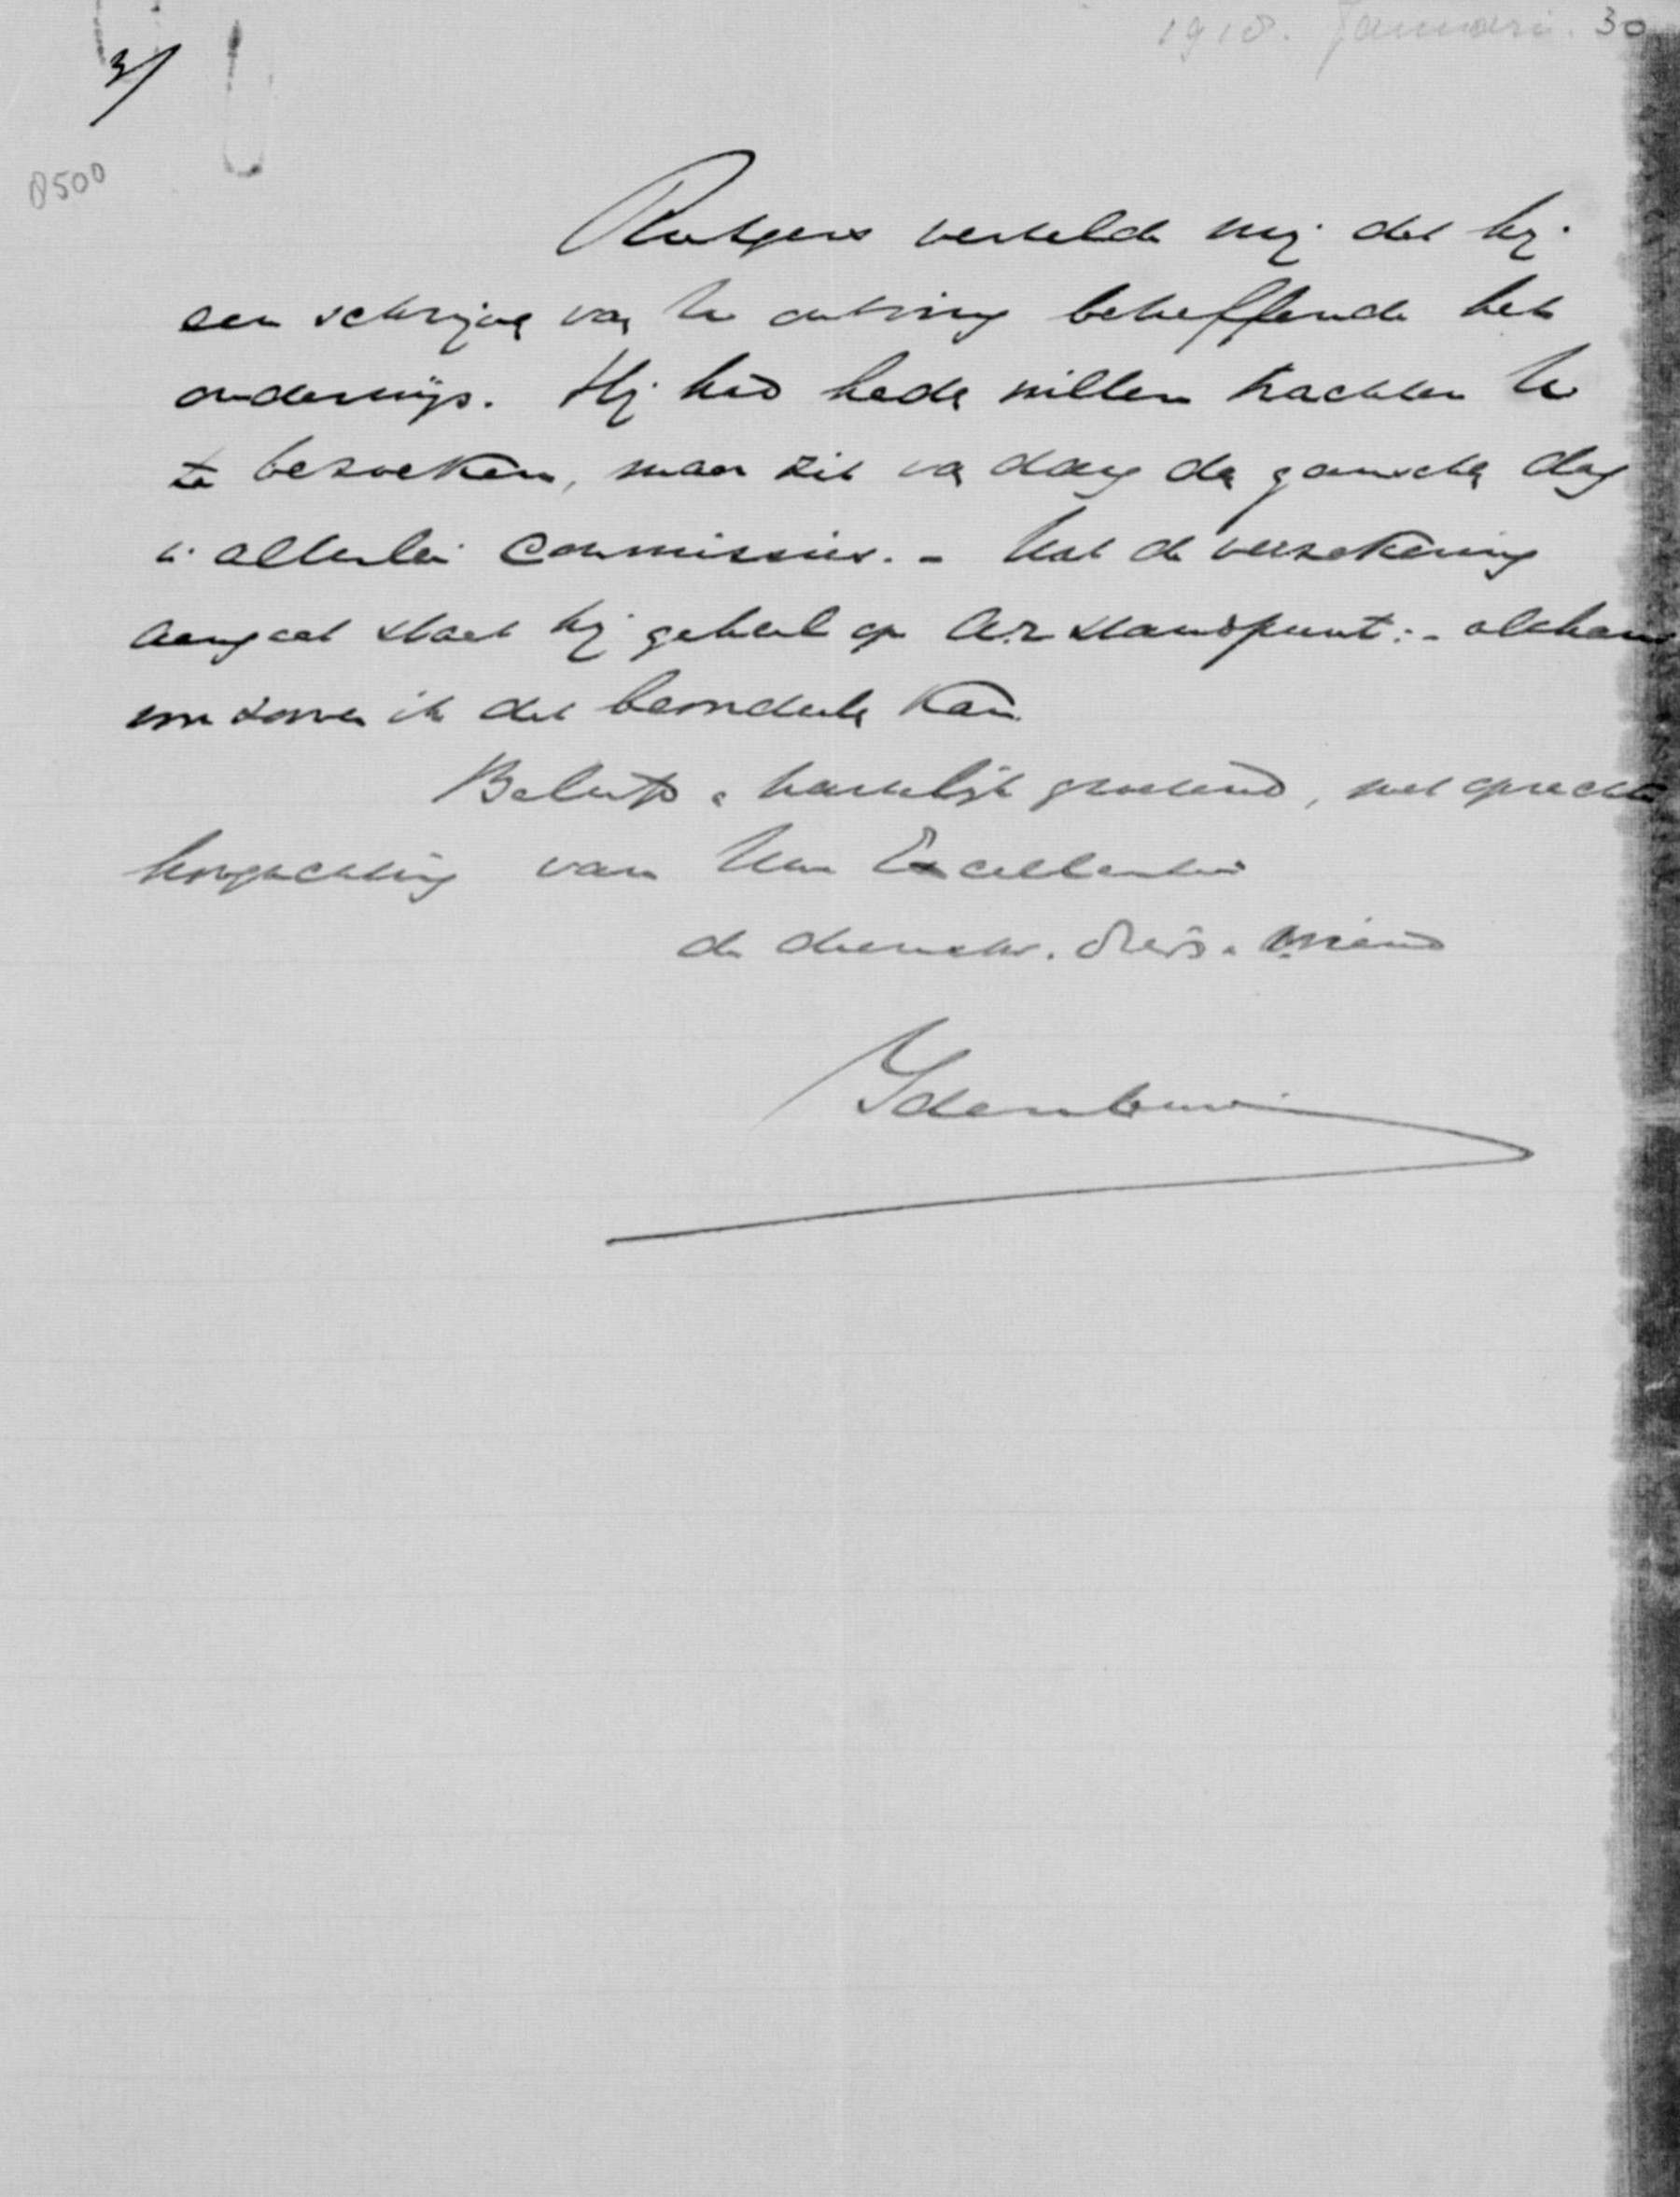 1918. Januari. 30
3/
8500
Rutgers vertelde mij dat hij
een schrijven van U ontving betreffende het
onderwijs. Hij had heden willen trachten U
te bezoeken, maar zit van daag den ganschen dag
in allerlei Commissies. - Wat de verzekering
aangaat staat hij geheel op A.R. standpunt: - althans
voor zoover ik dat beoordeelen kan.
Beleefd en hartelijk groetend, met oprechte
hoogachting van Uwe Excellentie
de dienstw. en vriend
Idenburg